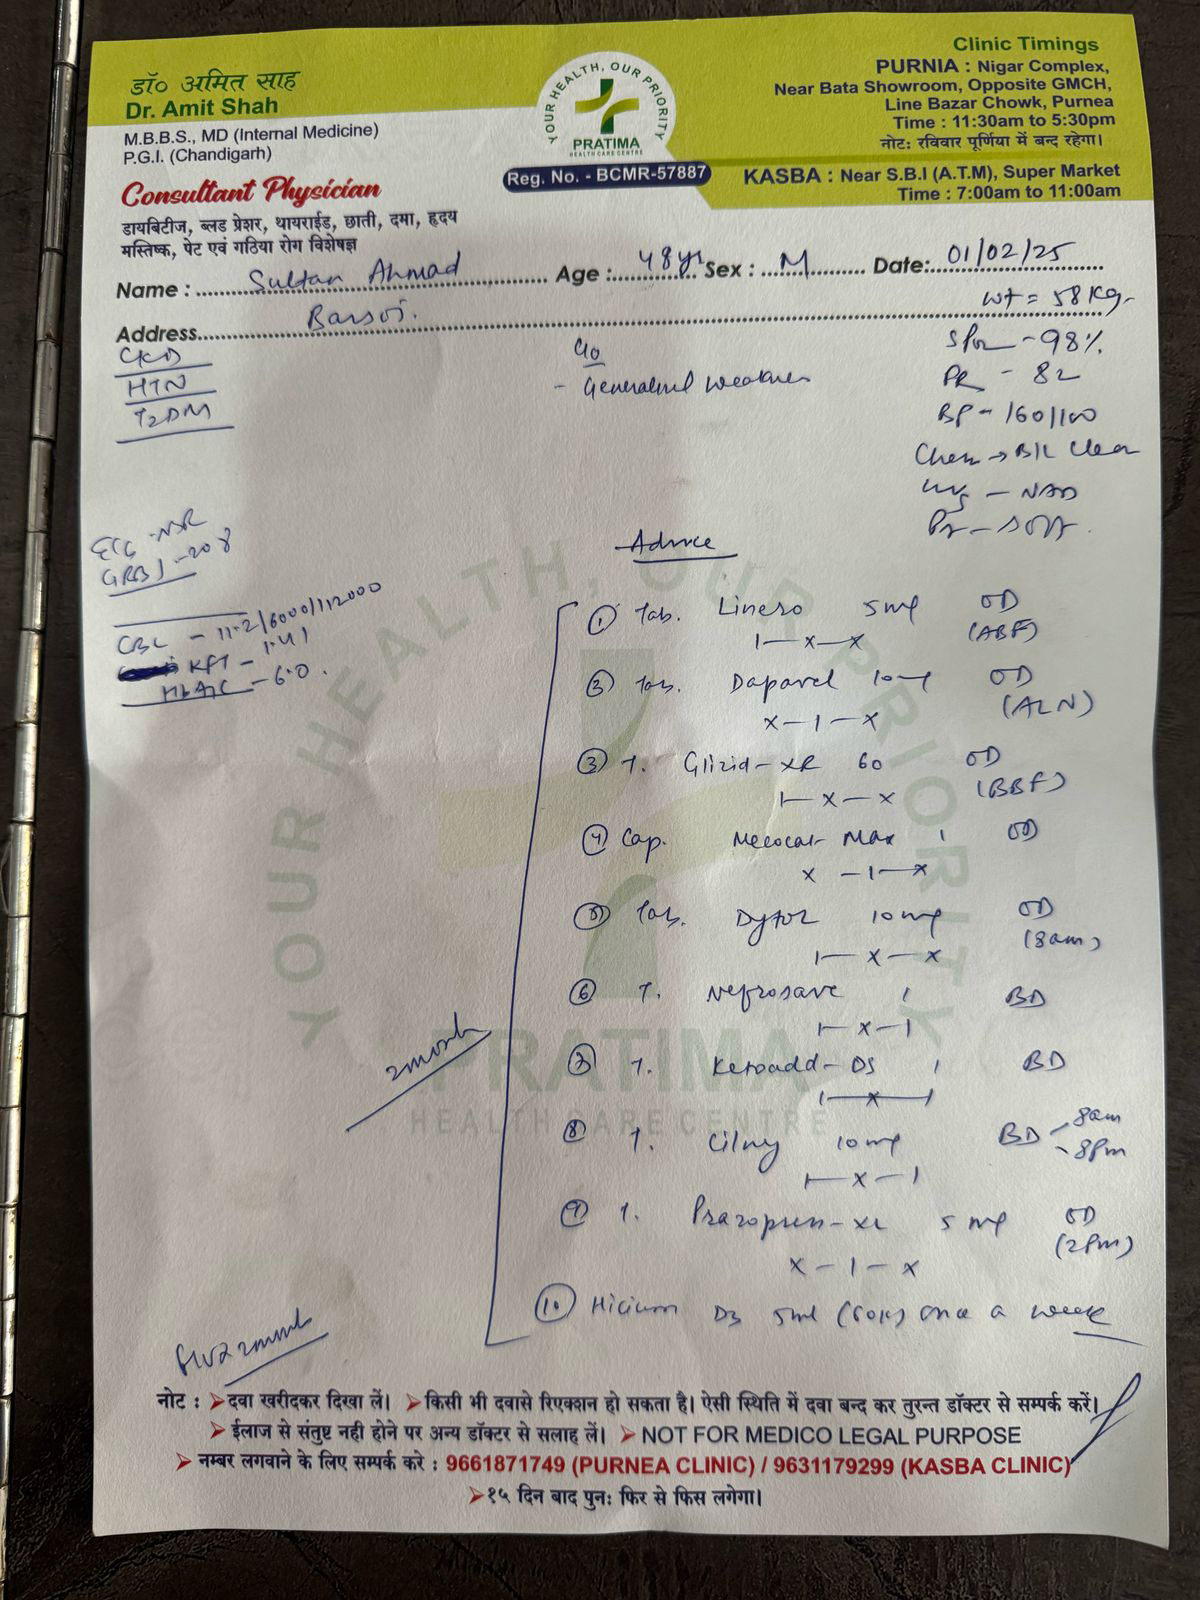 डॉ० अमित साह
Dr. Amit Shah
M.B.B.S., MD (Internal Medicine)
P.G.I. (Chandigarh)
Consultant Physician
डायबिटीज, ब्लड प्रेशर, थायराईड, छाती, दमा, हृदय
मस्तिष्क, पेट एवं गठिया रोग विशेषज्ञ
YOUR HEALTH, OUR PRIORITY
PRATIMA
HEALTH CARE CENTRE
Reg. No. - BCMR-57887
Clinic Timings
PURNIA : Nigar Complex,
Near Bata Showroom, Opposite GMCH,
Line Bazar Chowk, Purnea
Time : 11:30am to 5:30pm
नोट: रविवार पूर्णिया में बन्द रहेगा।
KASBA : Near S.B.I (A.T.M), Super Market
Time : 7:00am to 11:00am
Name : Sultan Ahmad Age : 48yr Sex : M Date: 01/02/25
Address Barsoi.
wt = 58 Kg-
CKD
HTN
T2DM
C/o
- Generalised weakness
SPO2 - 98%
PR - 82
BP - 160/100
Chest → B/L clear
CVS - NAD
P/A - Soft.
ECG - NSR
GRBS - 208
CBC - 11.2/6000/112000
KFT - 1.41
HbA1C - 6.0.
Advice
① Tab. Linero 5mg OD
1—x—x (ABF)
② Tab. Daparel 10mg OD
x—1—x (ALN)
③ T. Glizid-XR 60 OD
1—x—x (BBF)
④ Cap. Mecocat Max 1 OD
x—1—x
⑤ Tab. Dytor 10mg OD
1—x—x (8am)
⑥ T. Nefrosave 1 BD
1—x—1
⑦ T. Ketoadd-DS 1 BD
1—x—1
⑧ T. Cilny 10mg BD 8am
1—x—1 8pm
⑨ T. Prazopress-XL 5mg OD
x—1—x (2pm)
⑩ Hicium D3 5ml (60K) once a week
2month
नोट : ➤दवा खरीदकर दिखा लें। ➤किसी भी दवासे रिएक्शन हो सकता है। ऐसी स्थिति में दवा बन्द कर तुरन्त डॉक्टर से सम्पर्क करें।
➤ईलाज से संतुष्ट नही होने पर अन्य डॉक्टर से सलाह लें। ➤NOT FOR MEDICO LEGAL PURPOSE
➤नम्बर लगवाने के लिए सम्पर्क करे : 9661871749 (PURNEA CLINIC) / 9631179299 (KASBA CLINIC)
➤१५ दिन बाद पुनः फिर से फिस लगेगा।